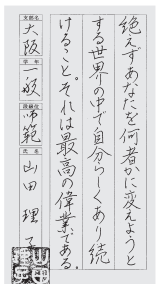 絶えずあなたを何者かに変えようと
する世界の中で自分らしくあり続
けること。それは最高の偉業である。
支部名 大阪 学年 一般 段級位 師範 氏名 山田 理